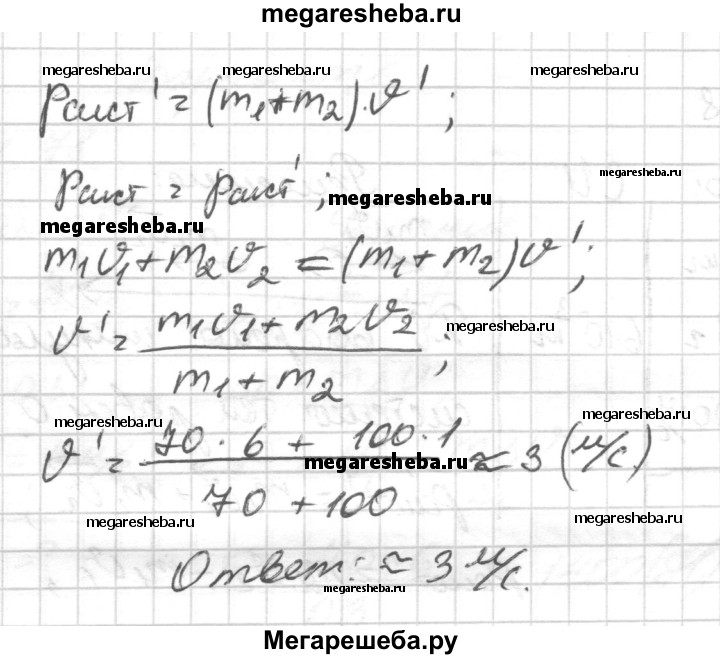 megaresheba.ru
megaresheba.ru megaresheba.ru megaresheba.ru
Pсист' = (m₁+m₂)·υ';
megaresheba.ru
Pсист = Pсист'; megaresheba.ru
megaresheba.ru
m₁υ₁+m₂υ₂ = (m₁+m₂)υ';
υ' = (m₁υ₁+m₂υ₂)/(m₁+m₂); megaresheba.ru
megaresheba.ru megaresheba.ru
υ' = (70·6 + 100·1)/(70+100) ≈ 3 (м/с)
megaresheba.ru
megaresheba.ru megaresheba.ru
Ответ: ≈ 3 м/с.
megaresheba.ru
Мегарешеба.ру